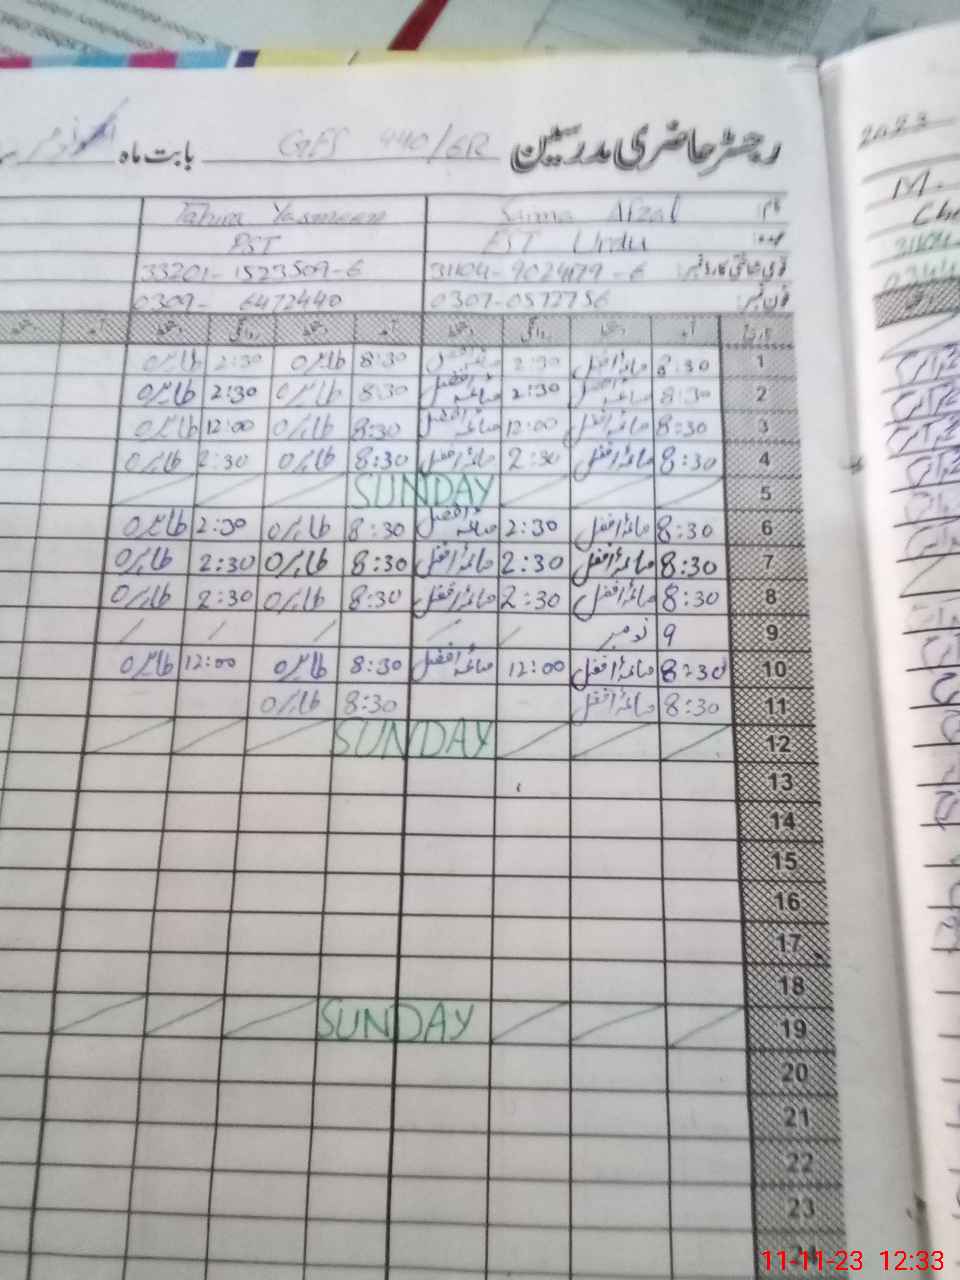 رجسٹر حاضری مدرسین GES 440/6R بابت ماہ نومبر
2023
نام Saima Afzal Tahira Yasmeen
عہدہ EST Urdu PST
قومی شناختی کارڈ نمبر: 31104-9024179-6 33201-1523509-6
فون نمبر: 0307-0572756 0309-6472440
تاریخ آمد دستخط روانگی دستخط آمد دستخط روانگی دستخط آمد
1 8:30 صائمہ افضل 2:30 صائمہ افضل 8:30 طاہرہ 2:30 طاہرہ
2 8:30 صائمہ افضل 2:30 صائمہ افضل 8:30 طاہرہ 2:30 طاہرہ
3 8:30 صائمہ افضل 12:00 صائمہ افضل 8:30 طاہرہ 12:00 طاہرہ
4 8:30 صائمہ افضل 2:30 صائمہ افضل 8:30 طاہرہ 2:30 طاہرہ
5 SUNDAY
6 8:30 صائمہ افضل 2:30 صائمہ افضل 8:30 طاہرہ 2:30 طاہرہ
7 8:30 صائمہ افضل 2:30 صائمہ افضل 8:30 طاہرہ 2:30 طاہرہ
8 8:30 صائمہ افضل 2:30 صائمہ افضل 8:30 طاہرہ 2:30 طاہرہ
9 9 نومبر
10 8:30 صائمہ افضل 12:00 صائمہ افضل 8:30 طاہرہ 12:00 طاہرہ
11 8:30 صائمہ افضل 8:30 طاہرہ
12 SUNDAY
13
14
15
16
17
18
19 SUNDAY
20
21
22
23
24
11-11-23 12:33